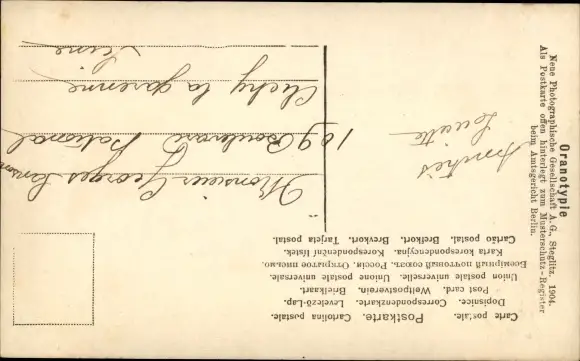 Postkarte.
Carte postale. Cartolina postale.
Dopisnice. Correspondenzkarte. Levelező-Lap.
Post card. Weltpostverein. Briefkaart.
Union postale universelle. Unione postale universale.
Всемірный почтовый союзъ. Россія. Открытое письмо.
Karta korespondencyjna. Korespondenční lístek.
Cartão postal. Brefkort. Brevkort. Tarjeta postal.
Amitiés
Monsieur Georges
109 Boulevard National
Clichy la garenne
Seine
Oranotypie
Neue Photographische Gesellschaft A. G., Steglitz. 1904.
Als Postkarte offen hinterlegt zum Musterschutz-Register
beim Amtsgericht Berlin.